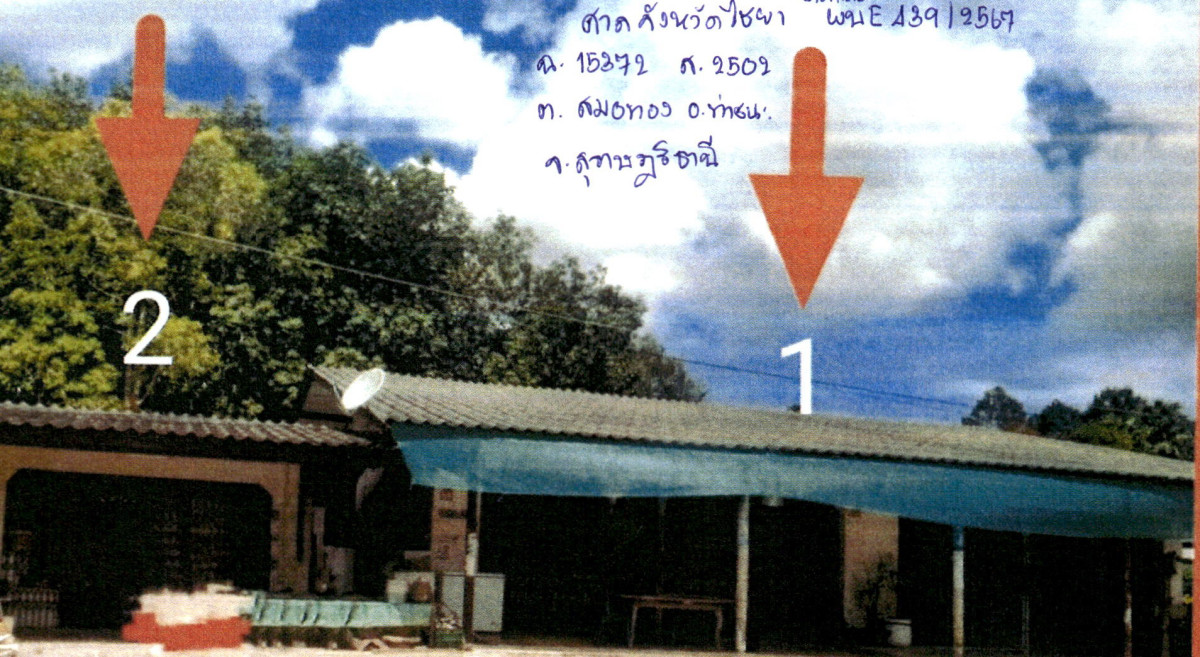 ศาลจังหวัดไชยา ผบE 439/2567
ฉ. 15372 ต. 2502
ต. สมอทอง อ.ท่าชนะ
จ.สุราษฎร์ธานี
2
1